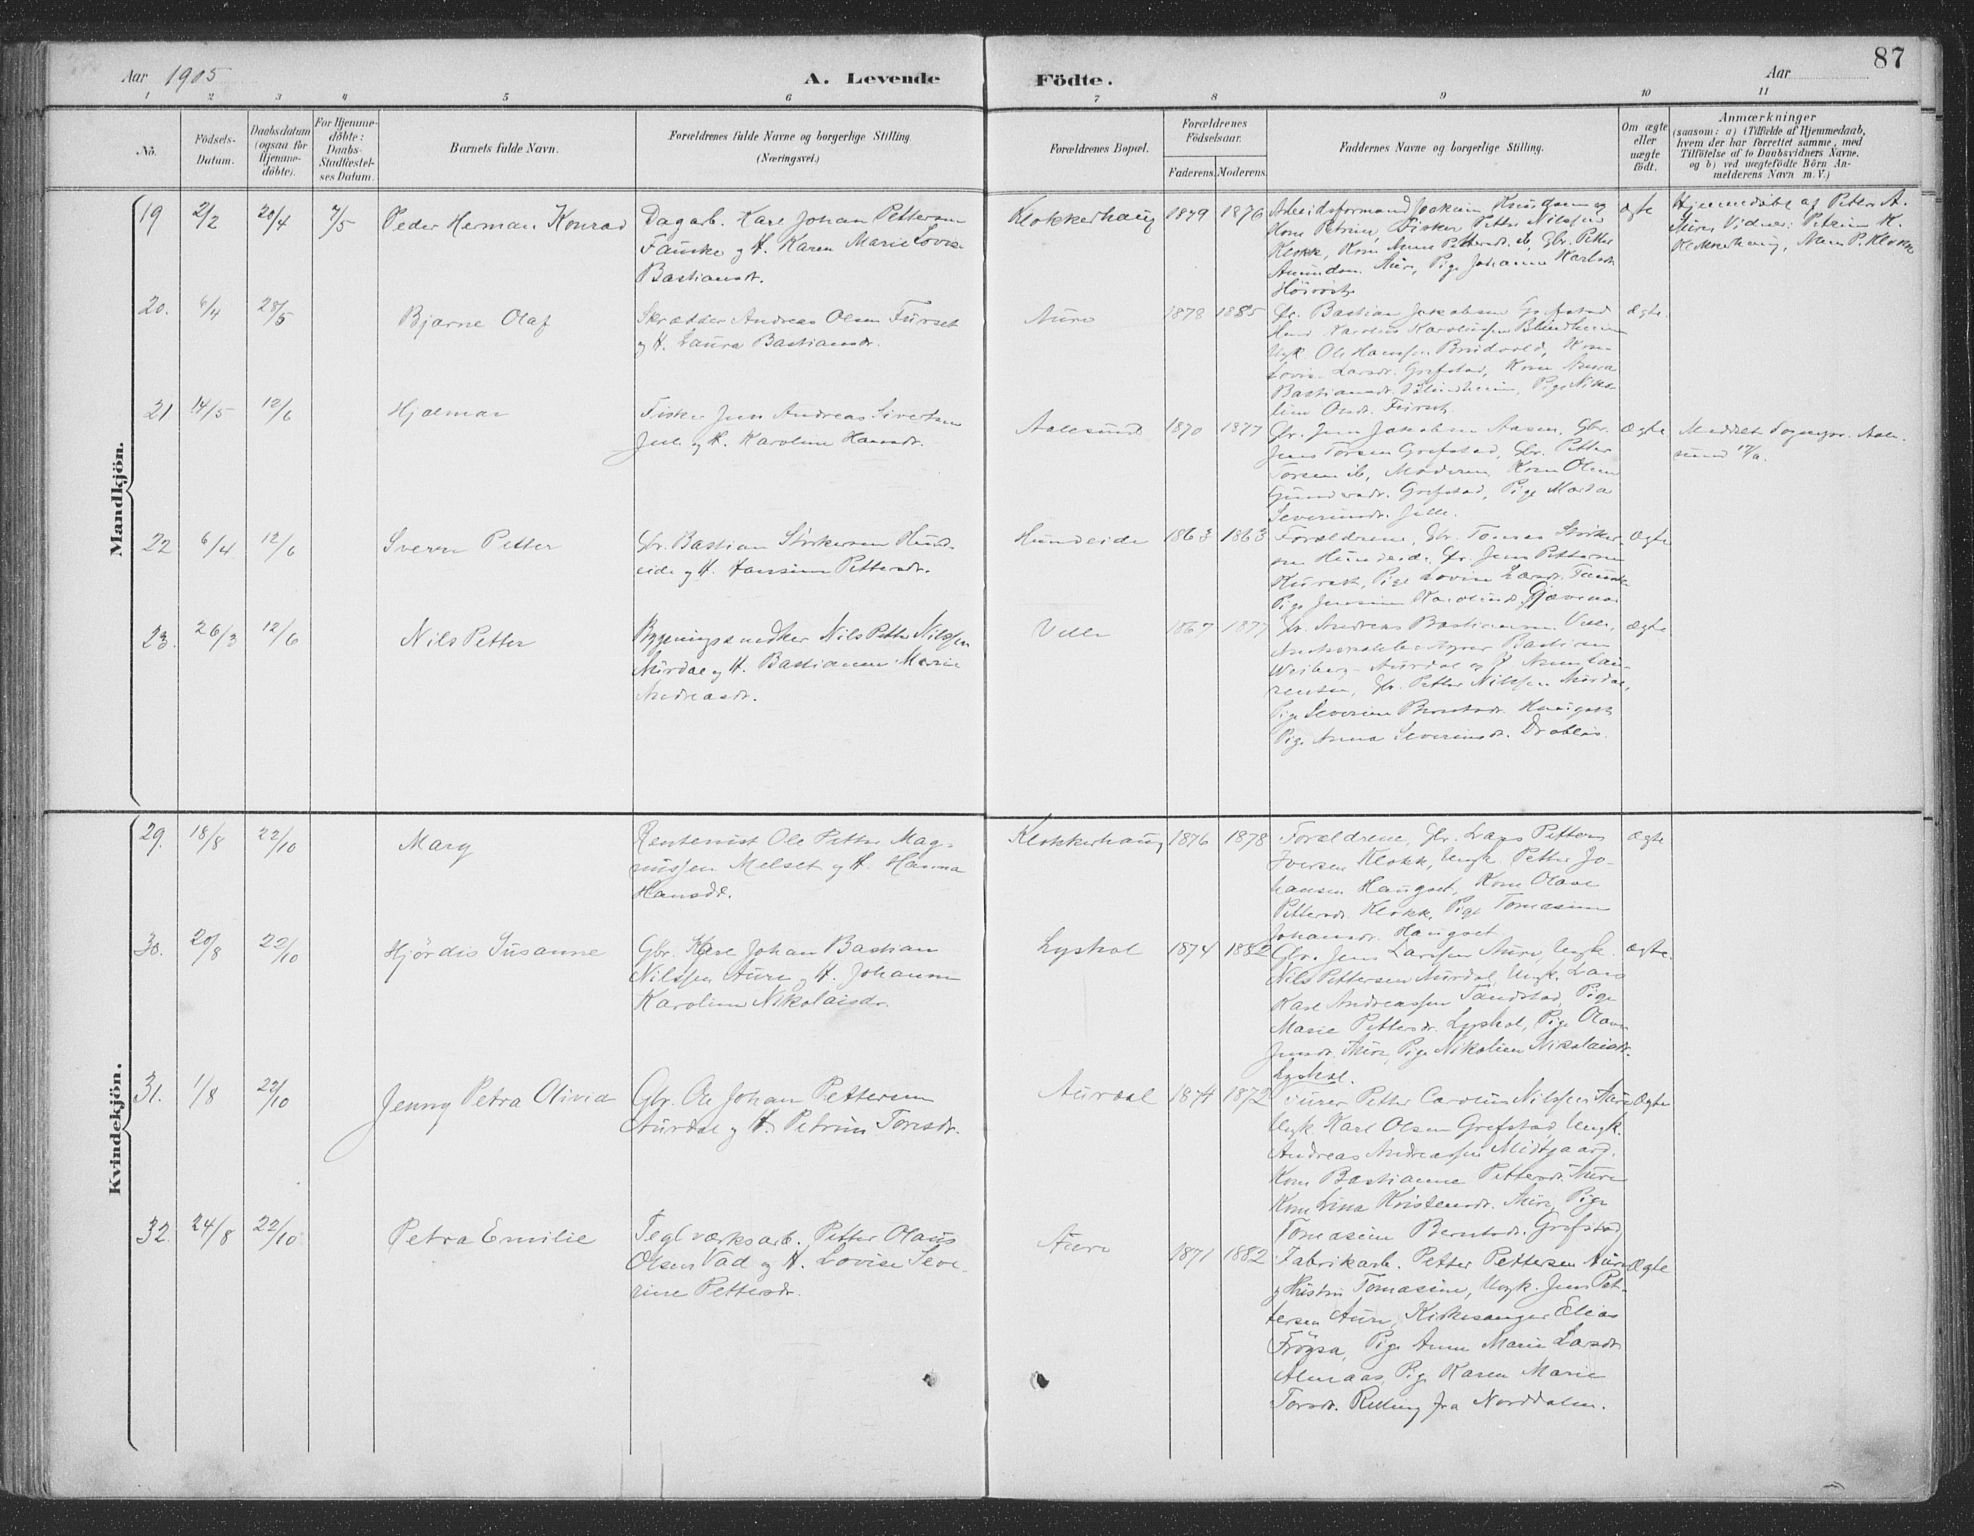 Aar 1905
A. Levende Födte.
Aar
87
1 2 3 4 5 6 7 8 9 10 11
No.
Födsels-Datum.
Daabsdatum (ogsaa for Hjemme-döbte).
For Hjemme-döbte: Daabs-Stadfæstel-ses Datum.
Barnets fulde Navn.
Forældrenes fulde Navne og borgerlige Stilling
(Næringsvei.)
Forældrenes Bopæl.
Forældrenes Födselsaar.
Faderens. Moderens.
Faddernes Navne og borgerlige Stilling.
Om ægte eller uægte födt.
Anmærkninger
(saasom: a) i Tilfælde af Hjemmedaab,
hvem der har forrettet samme, med
Tilföielse af to Daabsvidners Navne.
og b) ved uægtefödte Börn An-
melderens Navn m. V.)
Mandkjön.
19 2/2 20/4 7/5 Peder Herman Konrad
Dagarb. Karl Johan Pettersen
Fauske og H. Karen Marie Lovise
Bastiansdt.
Klokkerhaug 1879 1876
Arbeidsformand Joakim Knudsen og
Kone Petrine, Fisker Petter Nilssen
Klokk, Kone Anne Pettersdt. ib, Gbr. Petter
Amundsen Aure, Pige Johanne Karlsdt.
ægte
Hjemmedöbt af Peter A.
Aure Vidner: Petrine K.
Klokkerhaug, P. Klokk
20. 6/4 28/5 Bjarne Olaf
Skrædder Andreas Olsen Fürset
og H. Laura Bastiansdt.
Aure 1878 1885
Gbr. Bastian Jakobsen Grefstad
Karolus Karolussen Blindheim
Ungk. Ole Hanssen Brudevold, Kone
Lovise Larsdt. Grefstad, Kone Anna
Bastiansdt. Blindheim, Pige Niko-
line Olsdt. Fürset.
Ægte.
21 14/5 12/6 Hjalmar
Fisker Jens Andreas Sivertsen
og H. Karoline Hansdt.
Aalesund 1870 1877
Gbr. Jens Jakobsen Aasen, Gbr.
Jens Torsen Grefstad, Gbr. Petter
Torsen ib, Moderen, Kone Oline
Gundersdt. Grefstad, Pige Marta
Severinsdt.
Ægte
Meddelt Sognepr. Aale-
sund 17/6.
22 6/4 12/6 Sverre Petter
Gbr. Bastian Störkersen Hund-
eide og H. Hansine Pettersdt.
Hundeide 1863 1863
Forældrene, Gbr. Tomas Störker-
sen Hundeide, Gbr. Jens Pettersen
Pige Lovise Larsdt.
Pige Jensine Karolinusdt. Gjævenes
Ægte
23. 26/3 12/6 Nils Petter
Bygningssnedker Nils Petter Nilssen
Aürdal og H. Bastianne Marie
Andreasdt.
Velle 1867 1877
Gbr. Andreas Bastiansen Velle,
Bastian
Weiberg Aurdal og H. Anne Lau-
rentse, Gbr. Petter Nilssen Aurdal,
Pige Severine Berntsdt. Haugset
Pige Anna Severinsdt. Drabløs.
Ægte
Kvindekjön.
29. 18/8 22/10 Mary
Rentenist Ole Petter Mag-
nussen Melset og H. Hanna
Hansdt.
Klokkerhaug 1876 1878
Forældrene, Gbr. Lars Petter
Iversen Klokk, Ungk. Petter Jo-
hansen Haugset, Kone Olave
Pettersdt. Klokk, Pige Tomasine
Johansdt. Haugset
Ægte
30. 20/8 22/10 Hjördis Susanne
Gbr. Karl Johan Bastian
Nilssen Aure og H. Johanne
Karoline Nikolaisdr.
Lyshol 1874 1882
Gbr. Jens Larssen Aure, Ungk.
Nils Pettersen Aürdal, Ungk. Lars
Karl Andreassen Tandstad, Pige
Marie Pettersdt. Lyshol, Pige Olave
Jensdt. Aure, Pige Nikoline Nikolaisdr.
Lyshol.
Ægte.
31. 1/8 22/10 Jenny Petra Olivia
Gbr. Ole Johan Pettersen
Aürdal og H. Petrine Toresdr.
Aurdal 1874 1872
Petter Carolius Nilssen Aure
Ungk. Karl Olsen Grefstad, Ungk.
Andreas Andreassen Midtgaard,
Kone Bastianne Pettersdt. Aure
Kone Lina Kristensdt. Aure, Pige
Tomasine Berntsdt. Grefstad,
Ægte
32. 24/8 22/10 Petra Emilie
Teglværksarb. Petter Olaus
Olsen Vad og H. Lovise Seve-
rine Pettersdr.
Aure 1871 1882
Fabrikarb. Petter Pettersen Aure
og Hustru Tomasine, Ungk. Jens Pet-
tersen Aure, Kirkesanger Elias
Fröysa, Pige Anne Marie Larsdt.
Almaas, Pige Karen Marie
Torsdt. Relling fra Norddalen.
Ægte